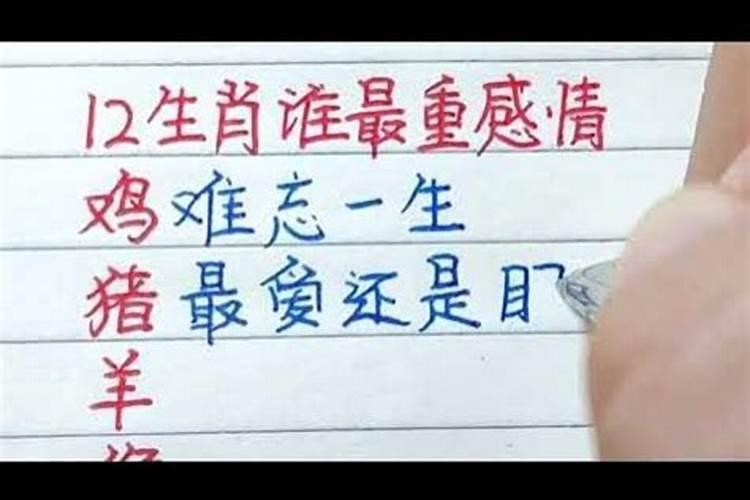 12生肖谁最重感情
鸡难忘一生
猪最爱还是
羊